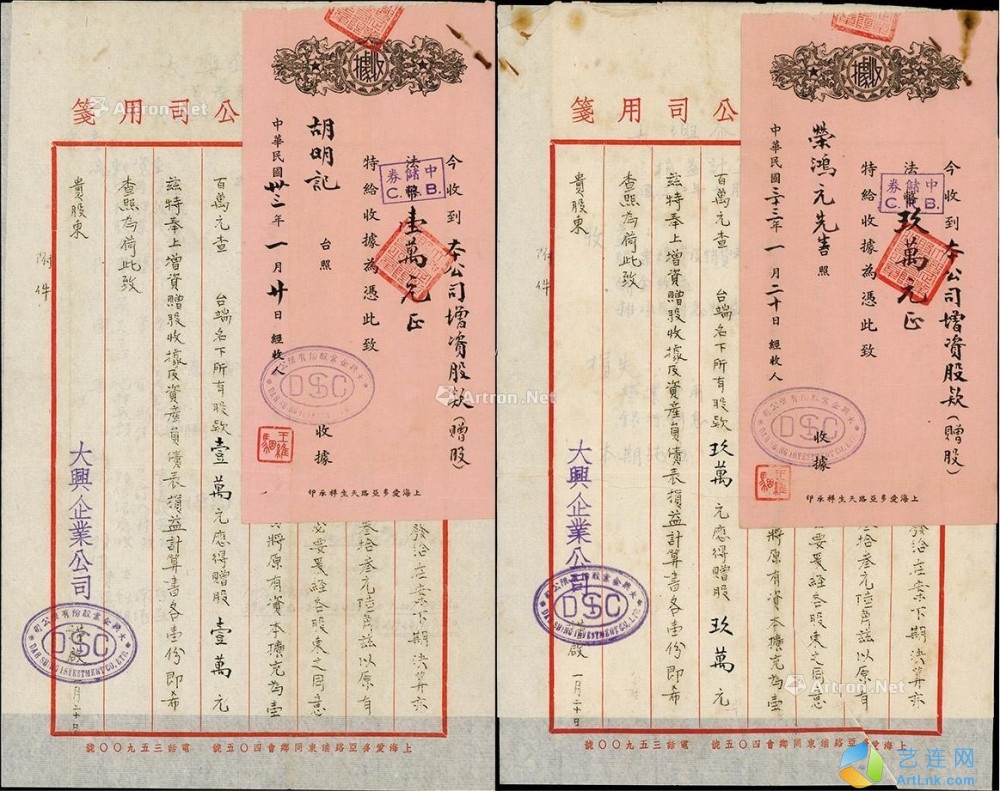 收據
今收到 本公司增資股款（贈股）
法幣 壹萬元正
中儲券
C. B.
特給收據為憑此致
胡明記 台照
中華民國卅三年一月廿日經收人
收據
DSC
上海愛多亞路天生祥承印
公司用箋
發給在案下期決算亦
叁拾叁元陸角茲以原有
必要爰經各股東之同意
將原有資本擴充為壹
百萬元查 台端名下所有股款壹萬元應得贈股壹萬元
茲特奉上增資贈股收據及資產負債表損益計算書各壹份即希
查照為荷此致
貴股東
附件
大興企業公司
大興企業股份有限公司
DAH SHING INVESTMENT CO., LTD.
DSC
啟 一月二十日
上海愛多亞路浦東同鄉會四〇五號 電話三五九〇〇號
收據
今收到 本公司增資股款（贈股）
法幣 玖萬元正
中儲券
C. B.
特給收據為憑此致
榮鴻元先生 台照
中華民國三十三年一月二十日經收人
收據
DSC
上海愛多亞路天生祥承印
公司用箋
發給在案下期決算亦
叁拾叁元陸角茲以原有
必要爰經各股東之同意
將原有資本擴充為壹
百萬元查 台端名下所有股款玖萬元應得贈股玖萬元
茲特奉上增資贈股收據及資產負債表損益計算書各壹份即希
查照為荷此致
貴股東
附件
大興企業公司
大興企業股份有限公司
DAH SHING INVESTMENT CO., LTD.
DSC
啟 一月二十日
上海愛多亞路浦東同鄉會四〇五號 電話三五九〇〇號
Artron.Net
艺连网
ArtLnk.com